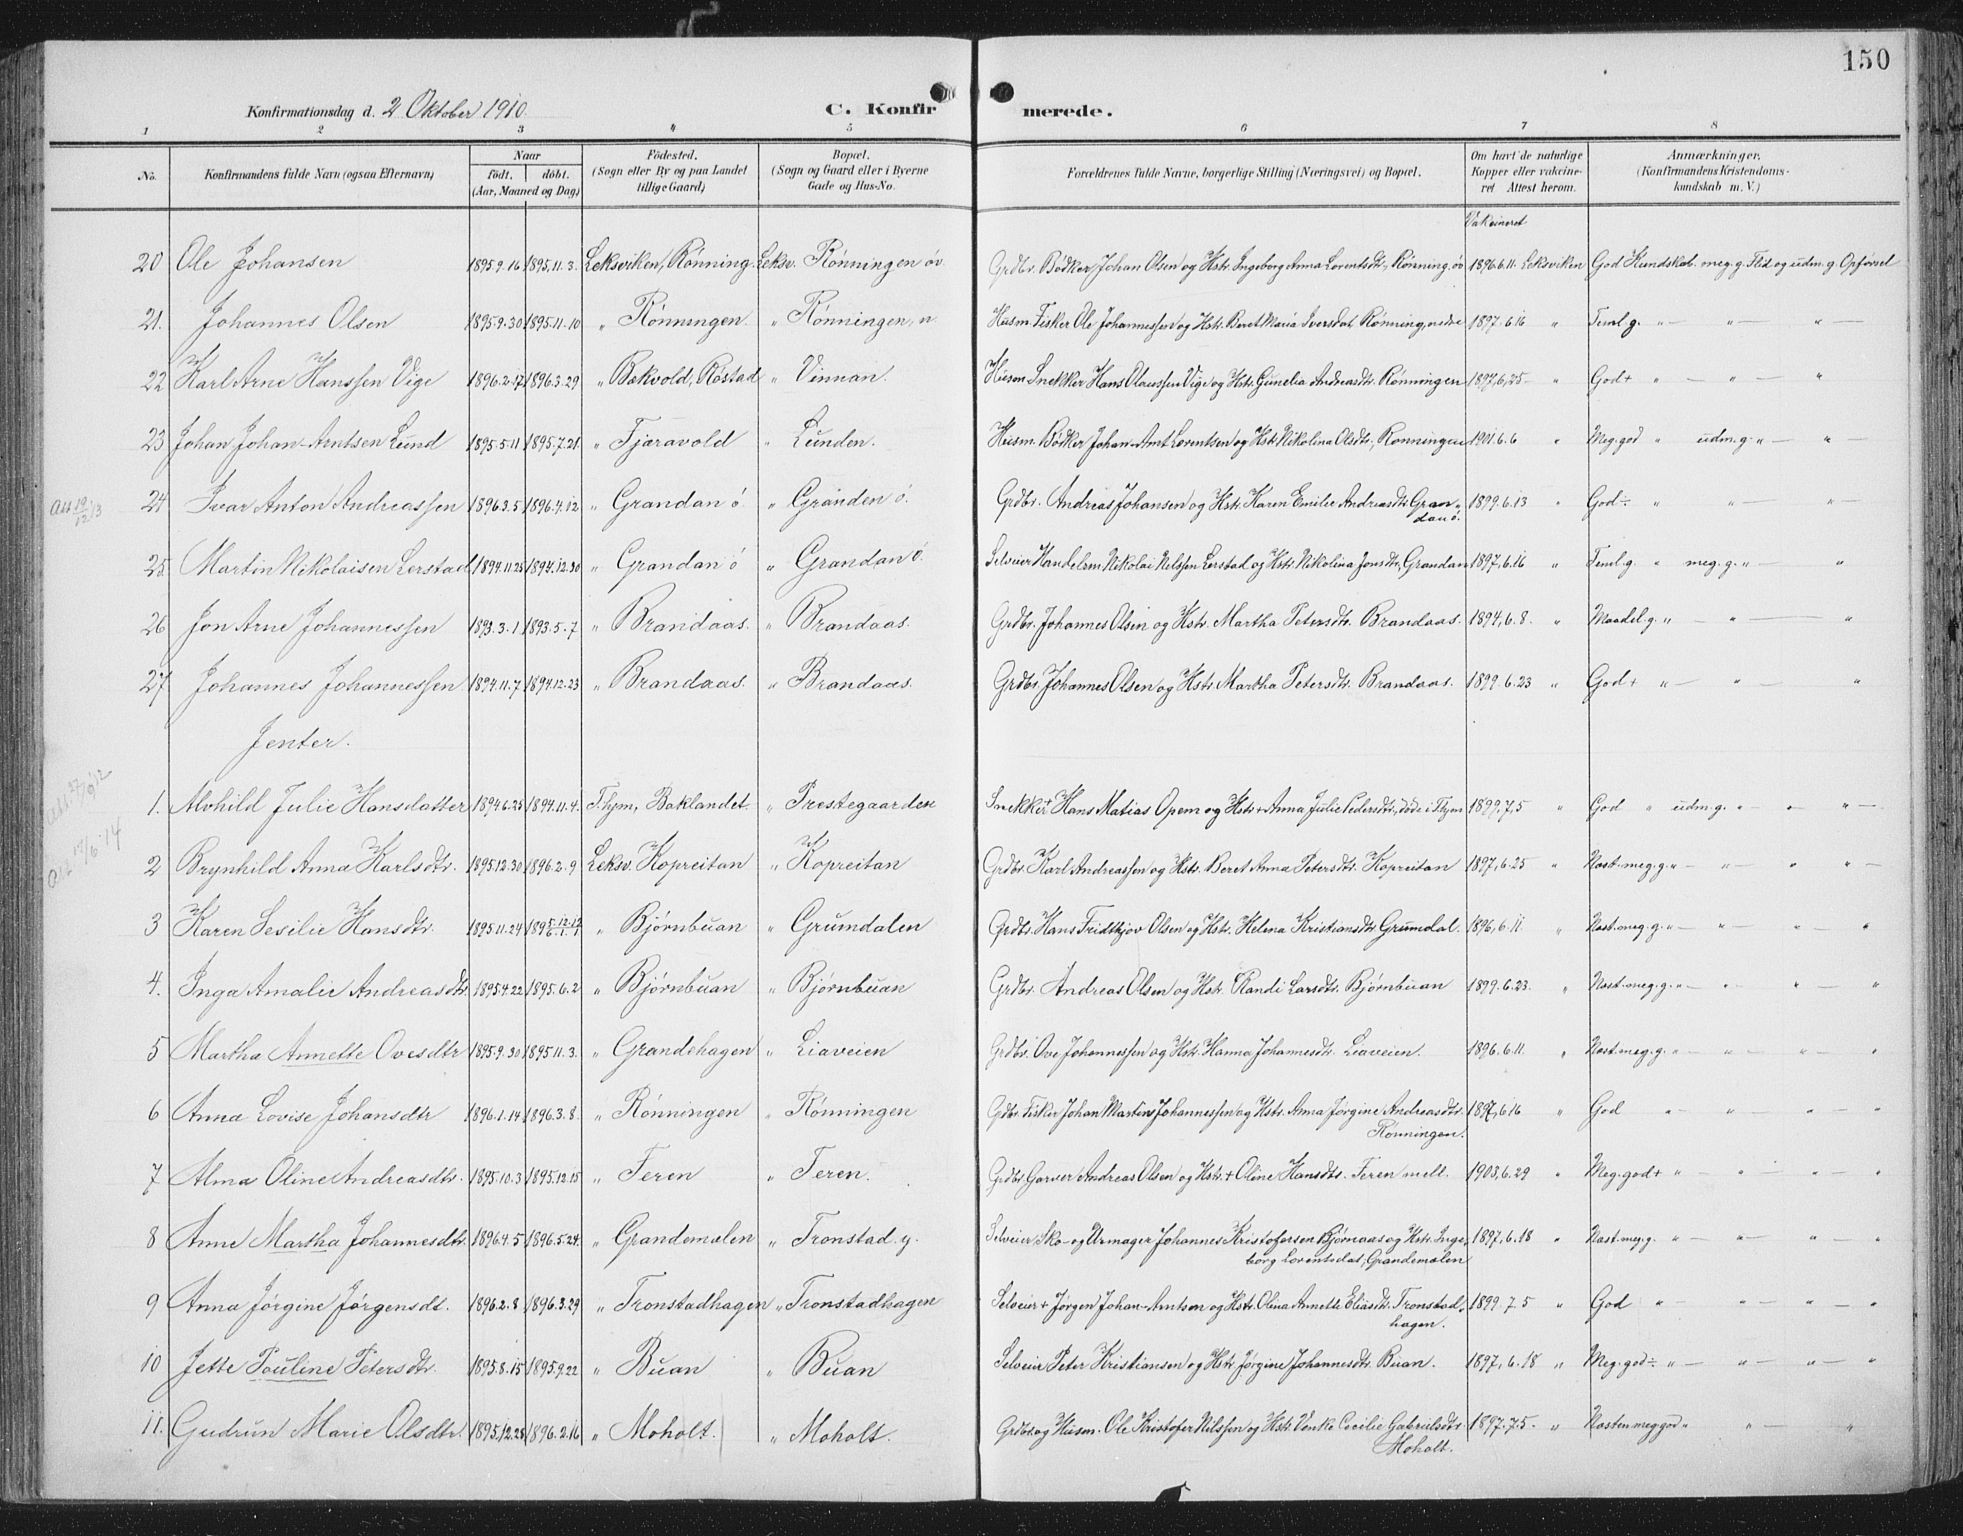 150
Konfirmationsdag d. 2 Oktober 1910. C. Konfirmerede.
1 2 3 4 5 6 7 8
No. Konfirmandens fulde Navn (ogsaa Efternavn) Naar födt. döbt. (Aar, Maaned og Dag) Födested. (Sogn eller By og paa Landet tillige Gaard) Bopæl. (Sogn og Gaard eller i Byerne Gade og Hus-No. Forældrenes fulde Navne, borgerlige Stilling (Næringsvei) og Bopæl. Om havt de naturlige Kopper eller vakcineret Attest herom. Anmærkninger, (Konfirmandens Kristendomskundskab m. V.)
Vakcineret
20 Ole Johansen 1895.9.16 1895.11.3. Leksviken, Rønning. Leksv. Rønningen öv. Grdbr. Bødker Johan Olsen og Hstr. Ingeborg Anna Lorentsdtr, Rønning, öv 1896.6.11. Leksviken God Kundskab. meg. g. Flid og udm. g. Opførsel
21. Johannes Olsen 1895.9.30 1895.11.10 " Rønningen. " Rønningen, n Husm. Fisker Ole Johannessen og Hstr. Beret Maria Iversdat. Rønning, nedre 1897.6.16 " Teml. g. " — " — " —
22 Karl Arne Hanssen Vige 1896.2.17 1896.3.29 " Bekvold, Røstad " Vinnan. Husm Snekker Hans Olaussen Vige og Hstr. Gunelia Andreasdtr. Rønningen 1897,6,25 " God+ " — " — "
23 Johan Johan-Arntsen Lund 1895.5.11 1895.7.21 " Tjæravold " Lunden. Husm. Bødker Johan-Arnt Lorentsen og Hstr. Nikolina Olsdtr, Rønningen 1901.6.6 " Meg. god " udm. g. " — " —
24 Ivar Anton Andreassen 1896.3.5 1896.4.12 " Grandan ö " Granden ö. Grdbr. Andreas Johansen og Hstr. Karen Emilie Andreasdtr. Grandan ö. 1899.6.13 " God÷ " " — " —
25. Martin Nikolaisen Lerstad 1894.11.25 1894.12.30 " Grandan ö " Grandan ö. Selveier Handelsm Nikolai Nilssen Lerstad og Hstr. Nikolina Jonsdtr, Grandan 1897,6.16 " Teml. g. " meg. g. " — "
26 Jon Arne Johannessen 1893.3.1 1893.5.7 " Brandaas. " Brandaas. Grdbr. Johannes Olsen og Hstr. Martha Petersdtr. Brandaas. 1894,6.8. " Maadel. g. " — " — "
27 Johannes Johannessen 1894.11.7 1894.12.23 " Brandaas. " Brandaas. Grdbr. Johannes Olsen og Hstr. Martha Petersdtr. Brandaas. 1899.6.23 " God+ " — " "
Jenter.
1. Alvhild Julie Hansdatter 1894.6.25 1894.11.4. T.hjm, Baklandet " Prestegaarden Snekker Hans Matias Opem og Hstr + Anna Julie Pedersdtr, døde i T.hjm 1899.7.5 " God " udm. g. " — " — " —
2 Brynhild Anna Karlsdtr. 1895.12.30 1896.2.9 Leksv. Kopreitan " Kopreitan Grdbr. Karl Andreassen og Hstr. Beret Anna Petersdtr. Kopreitan 1897,6.25 " Næst. meg. g. " — " " " —
3 Karen Sesilie Hansdtr. 1895.11.24 " Bjørnbuan " Grumdalen Grdbr. Hans Fridthjov Olsen og Hstr. Helena Kristiansdtr Grumdal. 1896,6.11. " Næst. meg. g. " — " — " — "
4. Inga Amalie Andreasdtr 1895.4.22 1895.6.2 " Bjørnbuan " Bjørnbuan Grdbr. Andreas Olsen og Hstr. Randi Larsdtr. Bjørnbuan 1899.6.23. " Næst. meg. g. " — " — " — "
5 Martha Annette Ovesdtr 1895.9.30 1895.11.3. " Grandehagen " Liaveien Grdbr. Ove Johannessen og Hstr. Hanna Johannesdtr. Liaveien. 1896.6.11. " Næst. meg. g. " — " — " — "
6 Anna Lovise Johansdtr 1896.1.14 1896.3.8. " Rønningen " Rønningen Gdbr. Fisker Johan Martin Johannessen og Hstr. Anna Jørgine Andreasdtr. Rønningen. 1897,6.16 " God " — " — " — "
7 Alma Oline Andreasdtr. 1895.10.3 1895.12.15 " Feren " Feren. Grdbr. Garver Andreas Olsen og Hstr. + Oline Hansdtr. Feren mell. 1903,6.29 " Meg. god+ " — " — " — "
8 Anne Martha Johannesdtr. 1896.4.5 1896.5.24. " Grandemælen " Tronstad y. Selveier Sko- og Urmager Johannes Kristofersen Bjørnaas og Hstr. Ingeborg Lorentsdat, Grandemælen 1897,6.18 " Næst. meg. g. " — " — " — "
9 Anna Jørgine Jørgensdt. 1896.2.8 1896.3.29 " Tronstadhagen " Tronstadhagen Selveier + Jørgen Johan-Arntsen og Hstr. Olina Annette Eliasdtr. Tronstadhagen. 1899.7.5 " God " — " — " — "
10 Jette Pauline Petersdtr. 1895.8.15 1895.9.22 " Buan " Buan Selveier Peter Kristiansen og Hstr. Jørgine Johannesdtr. Buan. 1897,6.18 " Meg. god÷ " — " — " — "
11. Gudrun Marie Olsdtr. 1895.12.28 1896.2.16 " Moholt. " Moholt. Grdbr. og Husm. Ole Kristofer Nilssen og Hstr. Venke Cecilie Gabrielsdtr Moholt. 1897.7.5 " Næsten meg god " " "